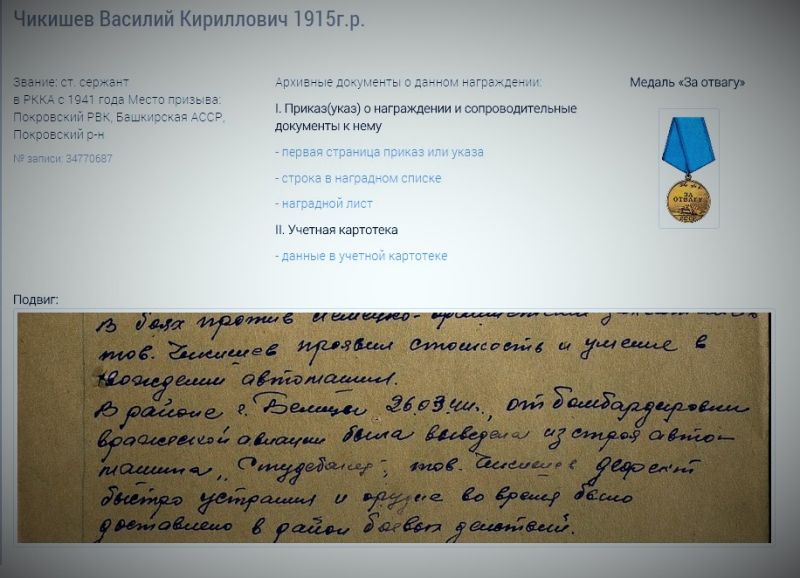 Чикишев Василий Кириллович 1915г.р.
Звание: ст. сержант
в РККА с 1941 года Место призыва:
Покровский РВК, Башкирская АССР,
Покровский р-н
№ записи: 34770687
Архивные документы о данном награждении:
I. Приказ(указ) о награждении и сопроводительные
документы к нему
- первая страница приказ или указа
- строка в наградном списке
- наградной лист
II. Учетная картотека
- данные в учетной картотеке
Медаль «За отвагу»
ЗА
ОТВАГУ
СССР
Подвиг:
В боях против немецко-
тов. Чикишев проявил стойкость и умение в
вождении автомашин.
В районе г. Бельцы 26.03.44г., от бомбардировки
вражеской авиации была выведена из строя авто-
машина „Студебакер", тов. Чикишев дефект
быстро устранил и орудие во время было
доставлено в район боевых действий.